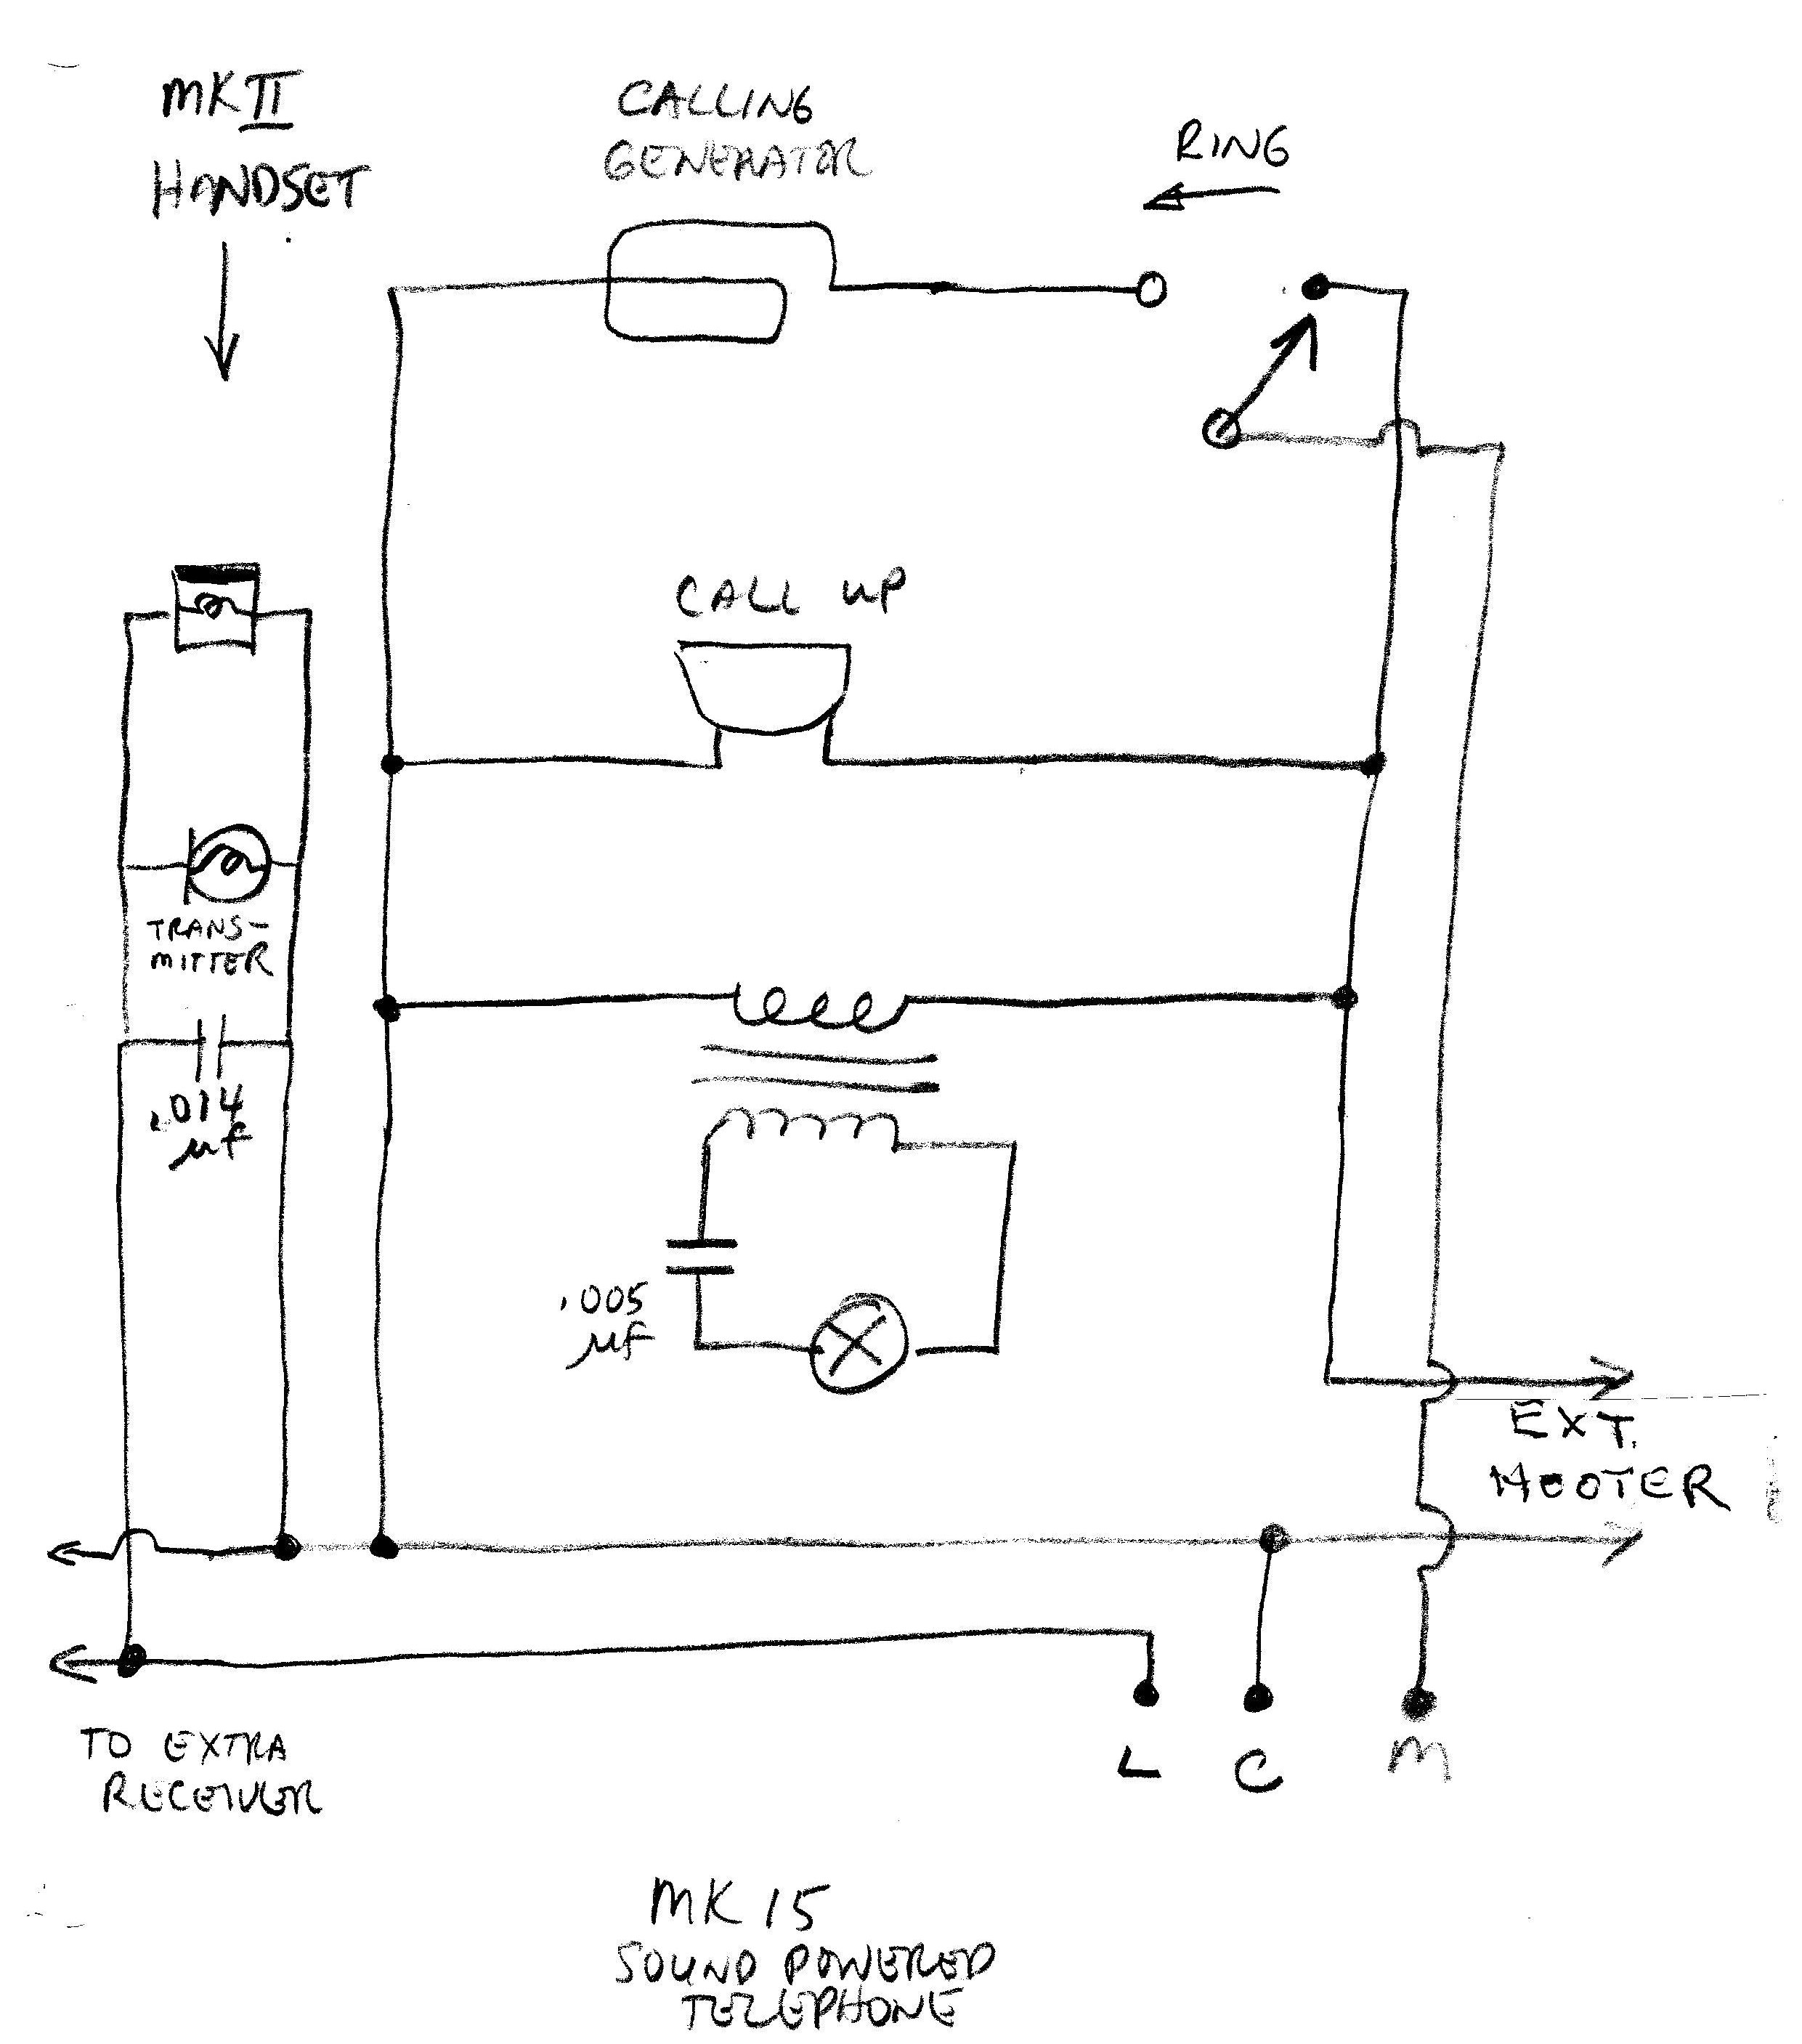 MK II
HANDSET
CALLING
GENERATOR
RING
CALL UP
TRANS-
MITTER
.014
µf
.005
µf
EXT.
HOOTER
TO EXTRA
RECEIVER
L C M
MK 15
SOUND POWERED
TELEPHONE